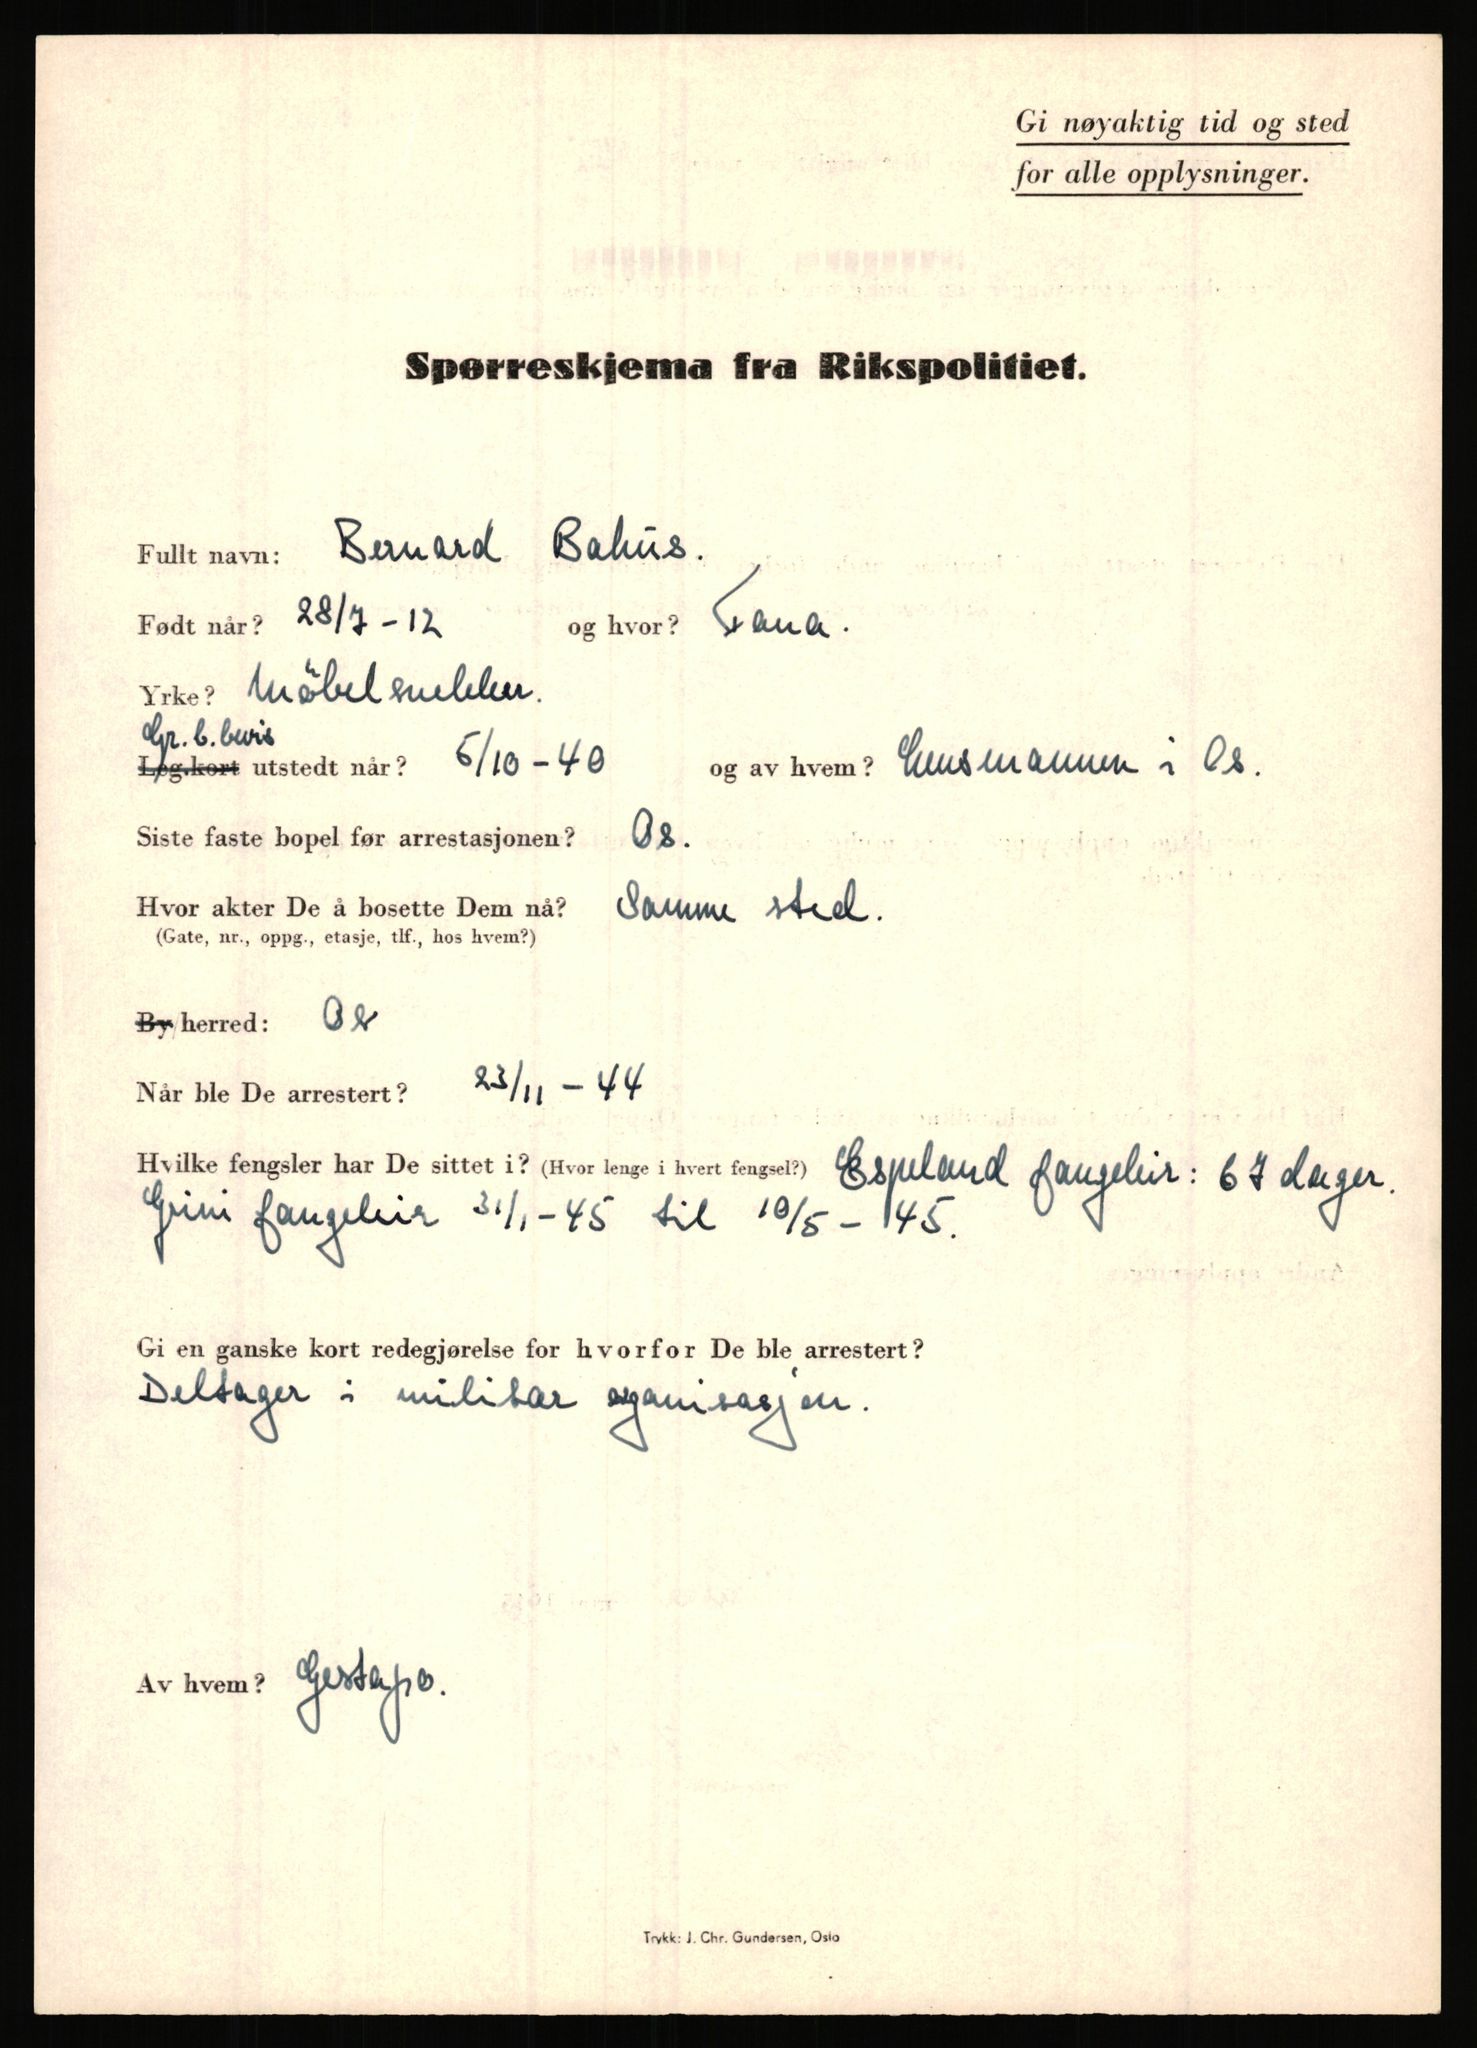 Gi nøyaktig tid og sted
for alle opplysninger.
Spørreskjema fra Rikspolitiet.
Fullt navn: Bernard Bahus.
Født når? 28/7 - 12 og hvor? Fana.
Yrke? Möbelsnekker.
Gr. b. bevis
Leg.kort utstedt når? 5/10 - 40 og av hvem? Lensmannen i Os.
Siste faste bopel før arrestasjonen? Os.
Hvor akter De å bosette Dem nå? Samme sted.
(Gate, nr., oppg., etasje, tlf., hos hvem?)
By/herred: Os
Når ble De arrestert? 23/11 - 44
Hvilke fengsler har De sittet i? (Hvor lenge i hvert fengsel?) Espeland fangeleir: 67 dager.
Grini fangeleir 31/1 - 45 til 10/5 - 45.
Gi en ganske kort redegjørelse for hvorfor De ble arrestert?
Deltager i militær organisasjon.
Av hvem? Gestapo.
Trykk: J. Chr. Gundersen, Oslo